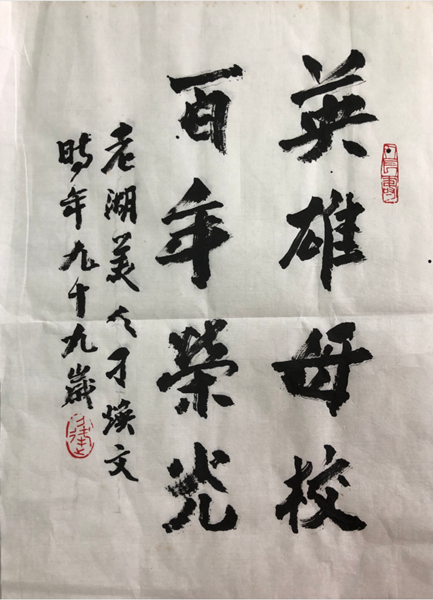 英雄母校
百年榮光
老湖美人刁焕文
時年九十九歲